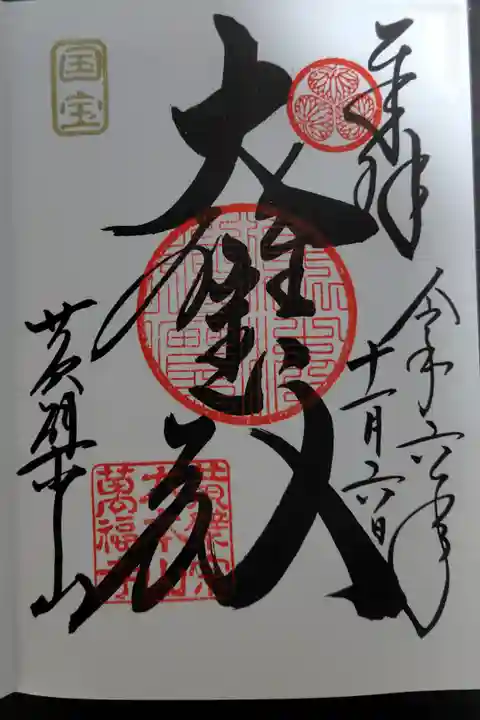 奉拝
令和六年
十一月六日
大雄寳殿
国宝
黄檗山
黄檗宗
大本山
萬福寺